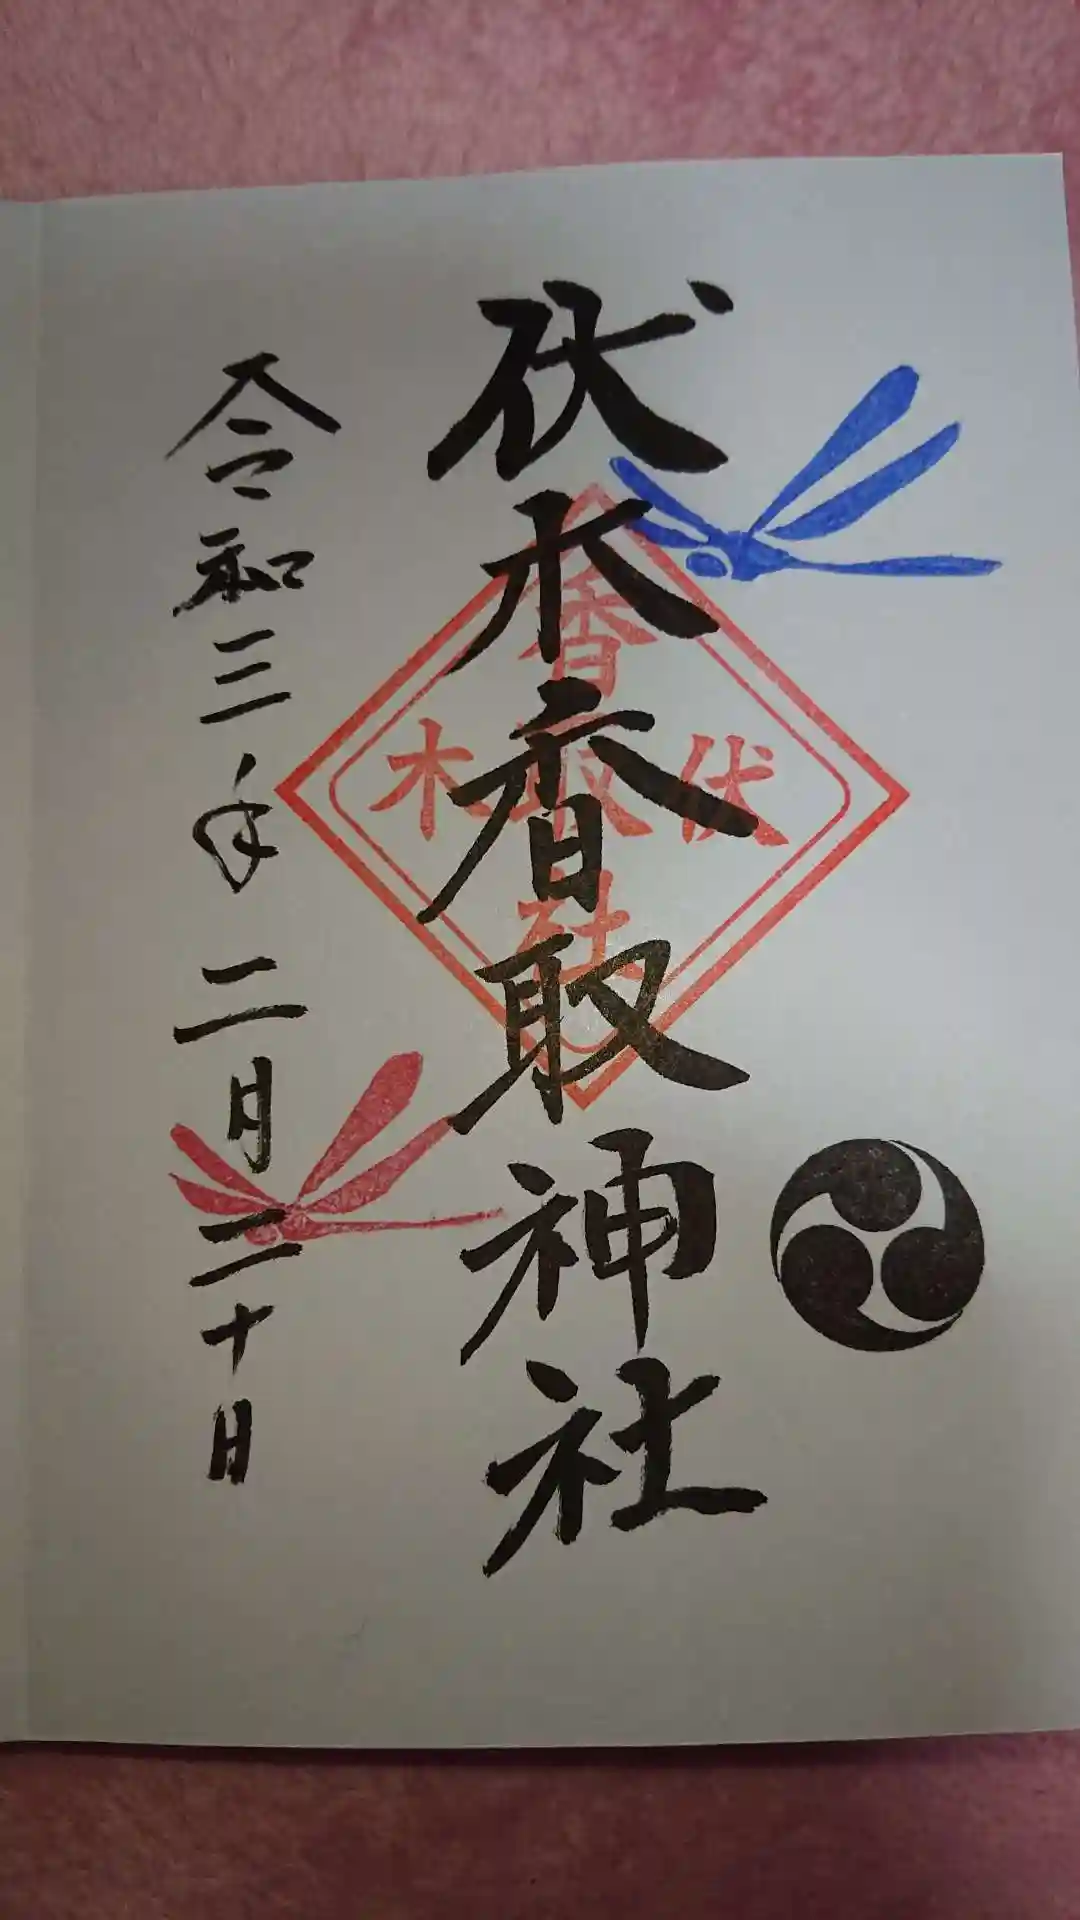 伏木香取神社
香取社
伏木
令和三年二月二十日